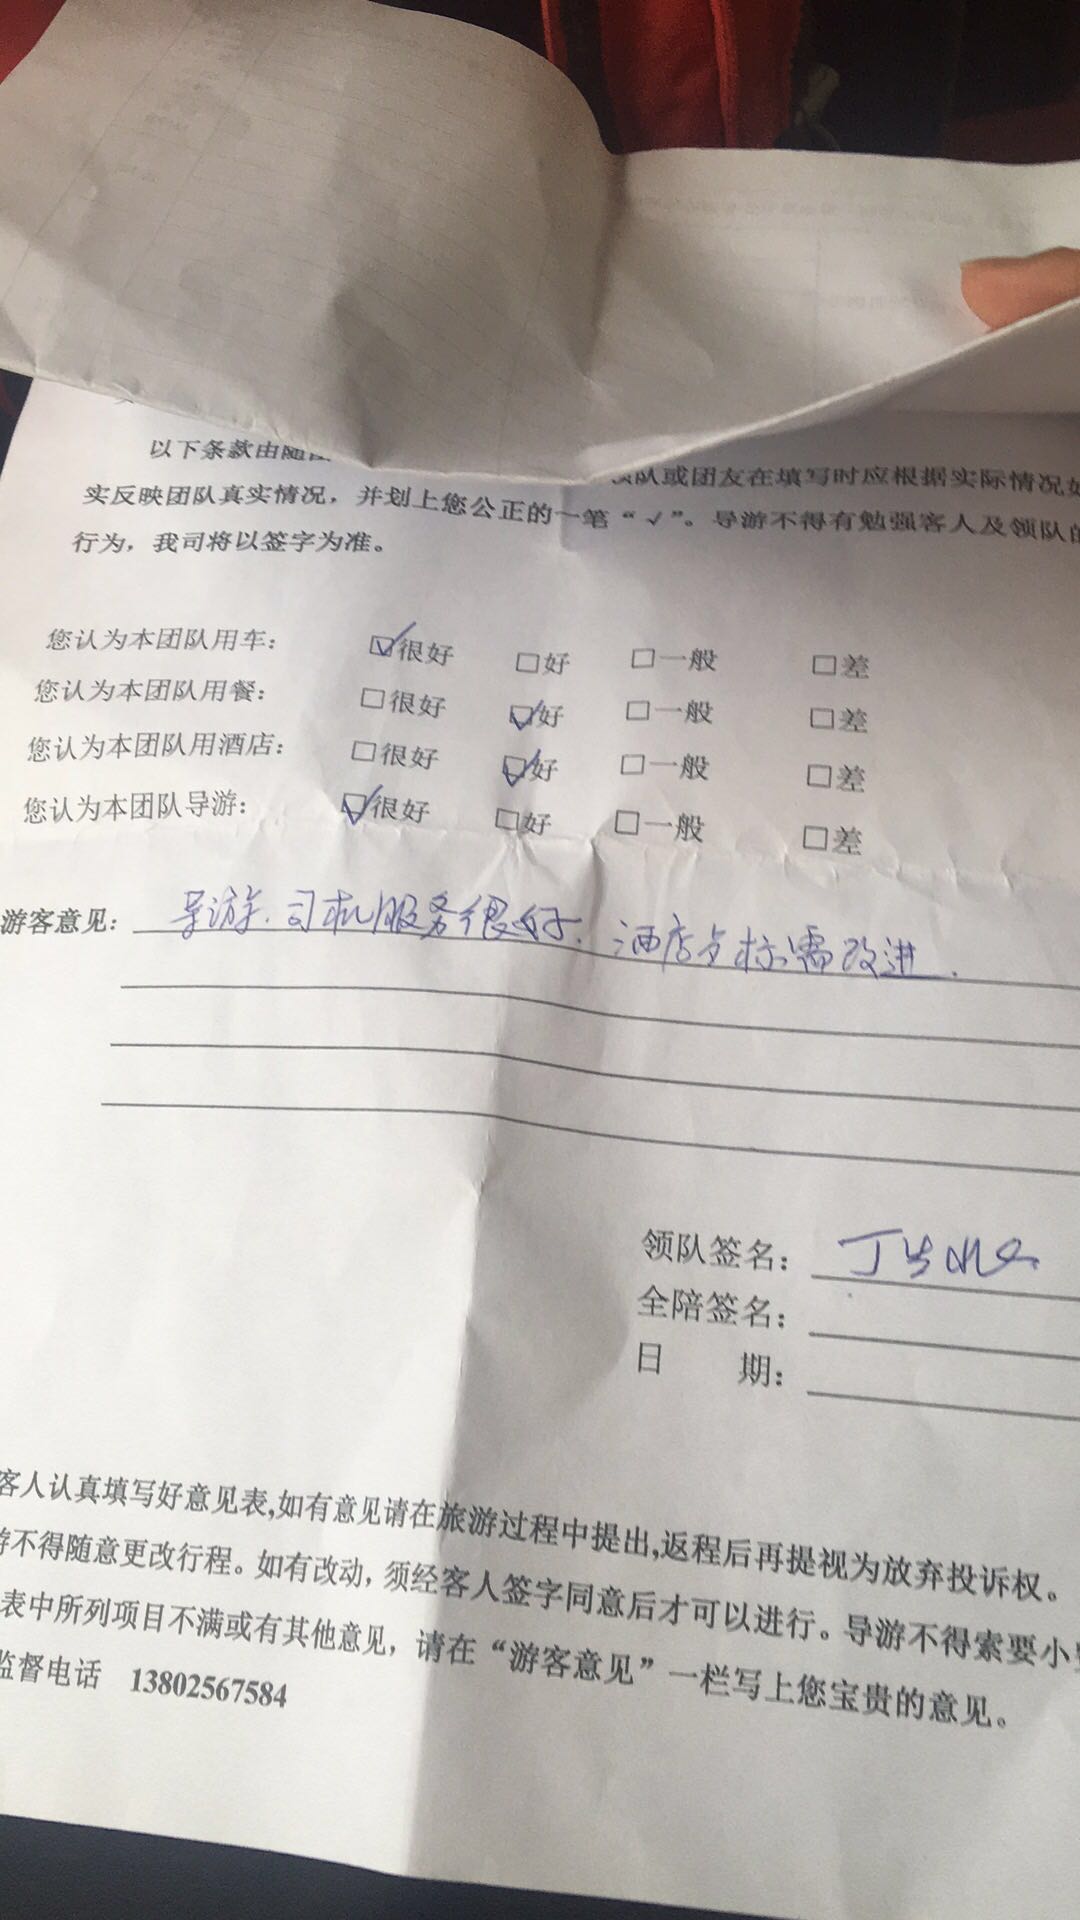 以下条款由随团
领队或团友在填写时应根据实际情况如
实反映团队真实情况，并划上您公正的一笔“√”。导游不得有勉强客人及领队的
行为，我司将以签字为准。
您认为本团队用车： ☑很好 □好 □一般 □差
您认为本团队用餐： □很好 ☑好 □一般 □差
您认为本团队用酒店： □很好 ☑好 □一般 □差
您认为本团队导游： ☑很好 □好 □一般 □差
游客意见： 导游.司机服务很好.酒店 标需改进.
领队签名： 丁
全陪签名：
日 期：
客人认真填写好意见表,如有意见请在旅游过程中提出,返程后再提视为放弃投诉权。
游不得随意更改行程。如有改动，须经客人签字同意后才可以进行。导游不得索要小
表中所列项目不满或有其他意见，请在“游客意见”一栏写上您宝贵的意见。
监督电话 13802567584